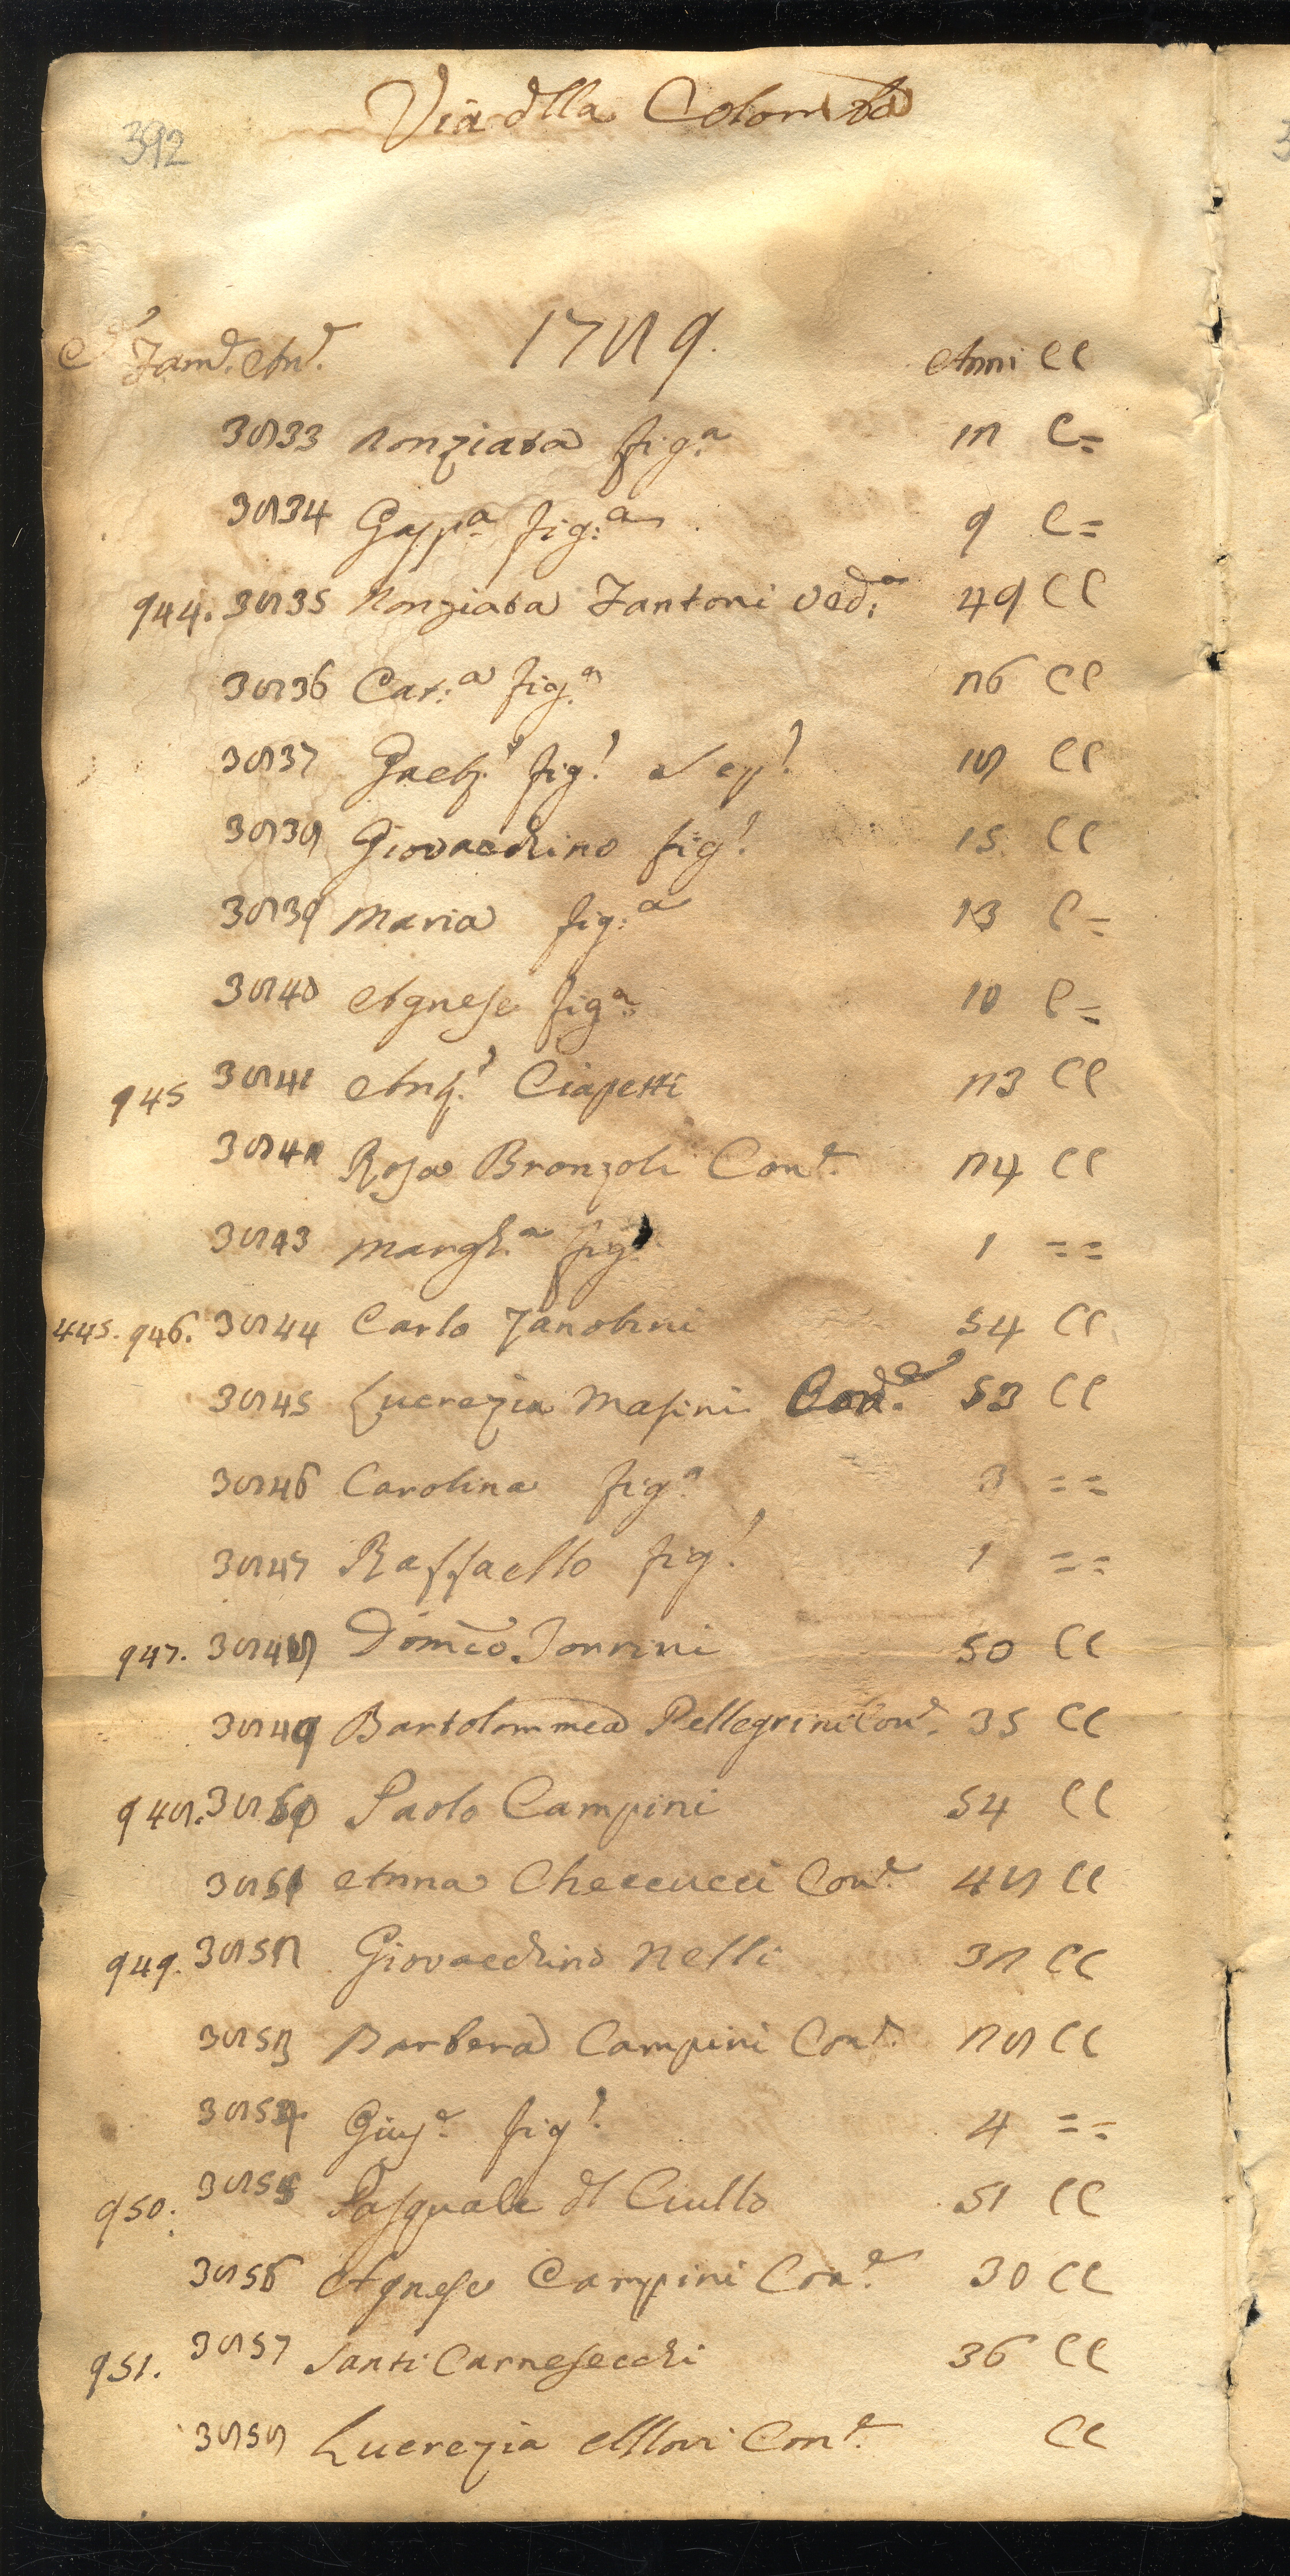 392
Via dlla Colomba
C.e Fam.e An.e 1789. Anni CC
3833 Nonziata fig.a 12 C=
3834 Gasp.a fig.a 9 C=
944. 3835 Nonziata Fantoni Ved.a 49 CC
3836 Cat.a fig.a 26 CC
3837 Gaet.o fig.o 18 CC
3838 Giovacchino fig.o 15 CC
3839 Maria fig.a 13 C=
3840 Agnese fig.a 10 C=
945 3841 Ang.o Ciapetti 23 CC
3842 Rosa Bronzoli Con.e 24 CC
3843 Margh.a fig.a 1 ==
445. 946. 3844 Carlo Zanobini 54 CC
3845 Lucrezia Masini Con.e 53 CC
3846 Carolina fig.a 3 ==
3847 Raffaello fig.o 1 ==
947. 3848 Domco Torrini 50 CC
3849 Bartolommea Pellegrini Con.e 35 CC
948. 3850 Paolo Campini 54 CC
3851 Anna Checcucci Con.e 48 CC
949. 3852 Giovacchino Nelli 32 CC
3853 Barbera Campini Con.e 28 CC
3854 Gius.e fig.o 4 ==
950. 3855 Pasquale dl Ciullo 51 CC
3856 Agnese Campini Con.e 30 CC
951. 3857 Santi Carnesecchi 36 CC
3858 Lucrezia Con.e CC